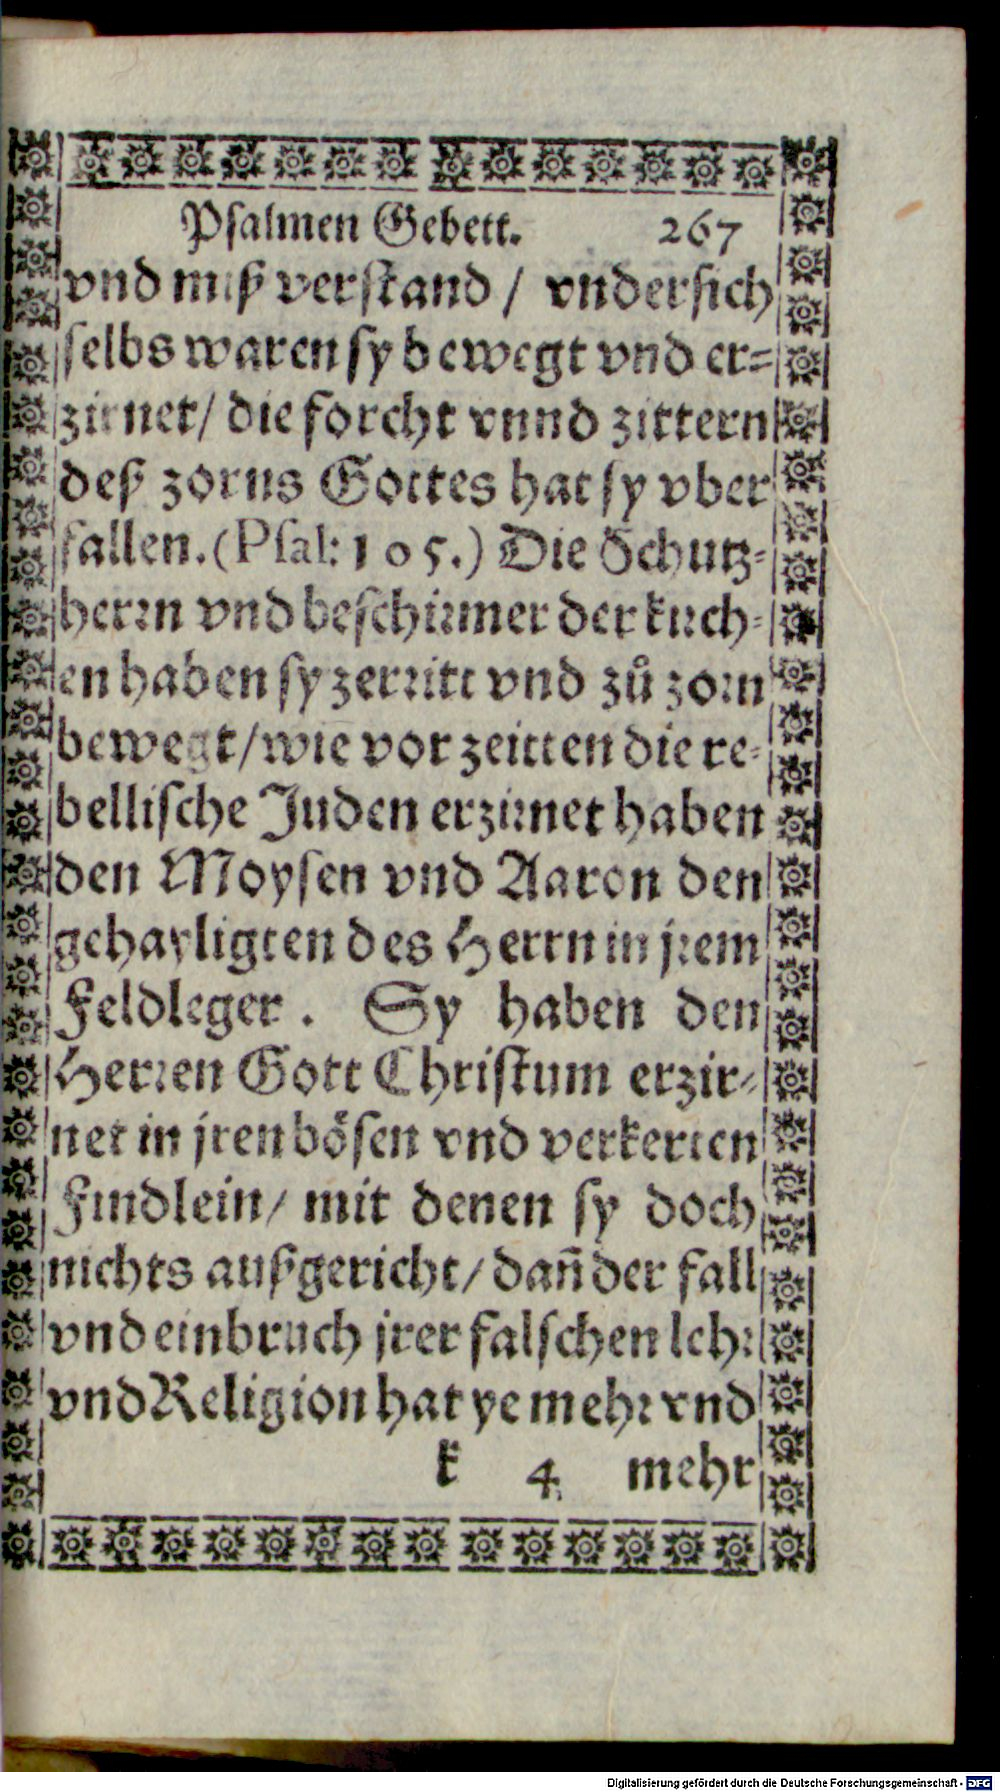 Psalmen Gebett. 267
vnd miß verstand / vndersich
selbs waren sy bewegt vnd er=
zirnet / die forcht vnnd zittern
deß zorns Gottes hat sy vber
fallen. (Psal: 105.) Die Schutz=
herrn vnd beschirmer der kirch=
en haben sy zerritt vnd zů zorn
bewegt / wie vor zeitten die re=
bellische Juden erzirnet haben
den Moysen vnd Aaron den
gehayligten des Herrn in jrem
Feldleger. Sy haben den
Herren Gott Christum erzir=
net in jren bösen vnd verkerten
Findlein / mit denen sy doch
nichts außgericht / dañ der fall
vnd einbruch jrer falschen lehr
vnd Religion hat ye mehr vnd
k 4 mehr
Digitalisierung gefördert durch die Deutsche Forschungsgemeinschaft - DFG